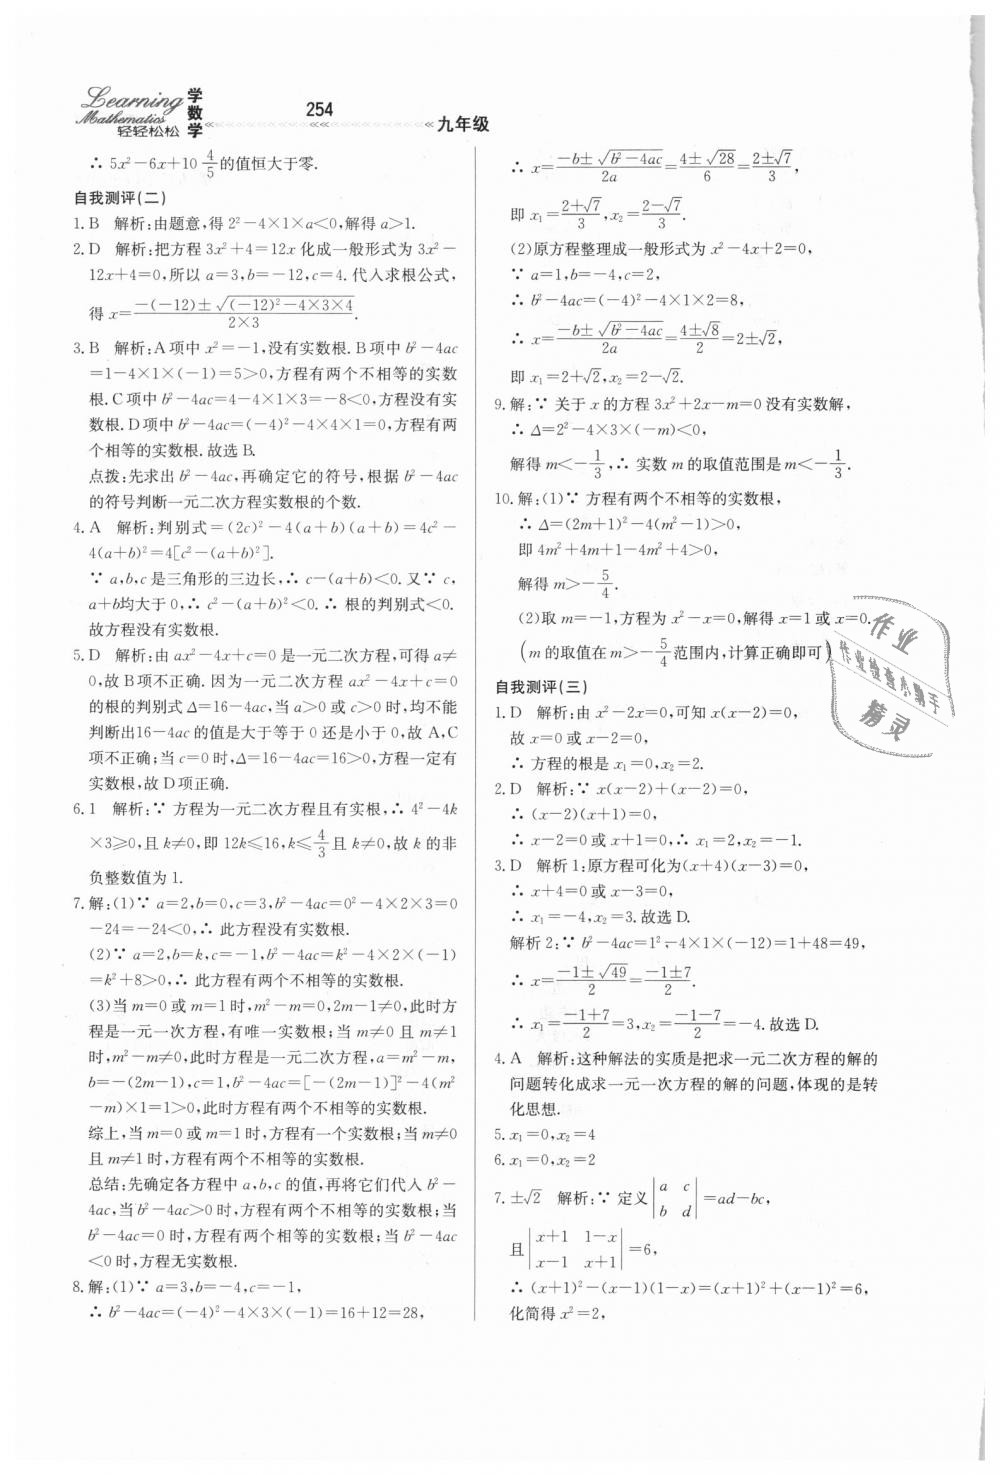 Learning
Mathematics
轻轻松松
学数学
254
九年级
∴ 5x²-6x+10 4/5 的值恒大于零.
自我测评(二)
1. B 解析:由题意,得 2²-4×1×a<0,解得 a>1.
2. D 解析:把方程 3x²+4=12x 化成一般形式为 3x²-
12x+4=0,所以 a=3,b=-12,c=4. 代入求根公式,
得 x=(-(-12)±√((-12)²-4×3×4))/(2×3).
3. B 解析:A项中 x²=-1,没有实数根. B项中 b²-4ac
=1-4×1×(-1)=5>0,方程有两个不相等的实数
根. C项中 b²-4ac=4-4×1×3=-8<0,方程没有实
数根. D项中 b²-4ac=(-4)²-4×4×1=0,方程有两
个相等的实数根. 故选 B.
点拨:先求出 b²-4ac,再确定它的符号,根据 b²-4ac
的符号判断一元二次方程实数根的个数.
4. A 解析:判别式=(2c)²-4(a+b)(a+b)=4c²-
4(a+b)²=4[c²-(a+b)²].
∵ a,b,c 是三角形的三边长,∴ c-(a+b)<0. 又∵ c,
a+b均大于 0,∴ c²-(a+b)²<0. ∴ 根的判别式<0.
故方程没有实数根.
5. D 解析:由 ax²-4x+c=0 是一元二次方程,可得 a≠
0,故 B项不正确. 因为一元二次方程 ax²-4x+c=0
的根的判别式 Δ=16-4ac,当 a>0 或 c>0 时,均不能
判断出16-4ac 的值是大于等于 0 还是小于 0,故 A,C
项不正确;当 c=0 时,Δ=16-4ac=16>0,方程一定有
实数根,故 D项正确.
6. 1 解析:∵ 方程为一元二次方程且有实根,∴ 4²-4k
×3≥0,且 k≠0,即 12k≤16,k≤4/3 且 k≠0,故 k 的非
负整数值为 1.
7. 解:(1)∵ a=2,b=0,c=3,b²-4ac=0²-4×2×3=0
-24=-24<0,∴ 此方程没有实数根.
(2)∵ a=2,b=k,c=-1,b²-4ac=k²-4×2×(-1)
=k²+8>0,∴ 此方程有两个不相等的实数根.
(3)当 m=0 或 m=1 时,m²-m=0,2m-1≠0,此时方
程是一元一次方程,有唯一实数根;当 m≠0 且 m≠1
时,m²-m≠0,此时方程是一元二次方程,a=m²-m,
b=-(2m-1),c=1,b²-4ac=[-(2m-1)]²-4(m²
-m)×1=1>0,此时方程有两个不相等的实数根.
综上,当 m=0 或 m=1 时,方程有一个实数根;当 m≠0
且 m≠1 时,方程有两个不相等的实数根.
总结:先确定各方程中 a,b,c 的值,再将它们代入 b²-
4ac,当 b²-4ac>0 时,方程有两个不相等的实数根;当
b²-4ac=0 时,方程有两个相等的实数根;当 b²-4ac
<0 时,方程无实数根.
8. 解:(1)∵ a=3,b=-4,c=-1,
∴ b²-4ac=(-4)²-4×3×(-1)=16+12=28,
∴ x=(-b±√(b²-4ac))/2a=(4±√28)/6=(2±√7)/3,
即 x₁=(2+√7)/3,x₂=(2-√7)/3.
(2)原方程整理成一般形式为 x²-4x+2=0,
∵ a=1,b=-4,c=2,
∴ b²-4ac=(-4)²-4×1×2=8,
∴ x=(-b±√(b²-4ac))/2a=(4±√8)/2=2±√2,
即 x₁=2+√2,x₂=2-√2.
9. 解:∵ 关于 x 的方程 3x²+2x-m=0 没有实数解,
∴ Δ=2²-4×3×(-m)<0,
解得 m<-1/3,∴ 实数 m 的取值范围是 m<-1/3.
10. 解:(1)∵ 方程有两个不相等的实数根,
∴ Δ=(2m+1)²-4(m²-1)>0,
即 4m²+4m+1-4m²+4>0,
解得 m>-5/4.
(2)取 m=-1,方程为 x²-x=0,解得 x=1 或 x=0.
(m 的取值在 m>-5/4 范围内,计算正确即可)
自我测评(三)
1. D 解析:由 x²-2x=0,可知 x(x-2)=0,
故 x=0 或 x-2=0,
∴ 方程的根是 x₁=0,x₂=2.
2. D 解析:∵ x(x-2)+(x-2)=0,
∴ (x-2)(x+1)=0,
∴ x-2=0 或 x+1=0,∴ x₁=2,x₂=-1.
3. D 解析 1:原方程可化为(x+4)(x-3)=0,
∴ x+4=0 或 x-3=0,
∴ x₁=-4,x₂=3. 故选 D.
解析 2:∵ b²-4ac=1²-4×1×(-12)=1+48=49,
∴ x=(-1±√49)/2=(-1±7)/2.
∴ x₁=(-1+7)/2=3,x₂=(-1-7)/2=-4. 故选 D.
4. A 解析:这种解法的实质是把求一元二次方程的解的
问题转化成求一元一次方程的解的问题,体现的是转
化思想.
5. x₁=0,x₂=4
6. x₁=0,x₂=2
7. ±√2 解析:∵ 定义 |a c; b d|=ad-bc,
且 |x+1 1-x; x-1 x+1|=6,
∴ (x+1)²-(x-1)(1-x)=(x+1)²+(x-1)²=6,
化简得 x²=2,
作业
作业检查小助手
精灵